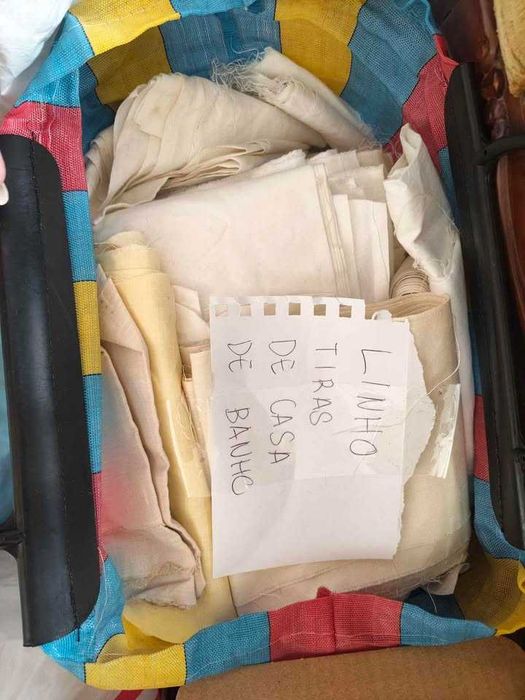 LINHO
TIRAS
DE CASA
DE BANHO